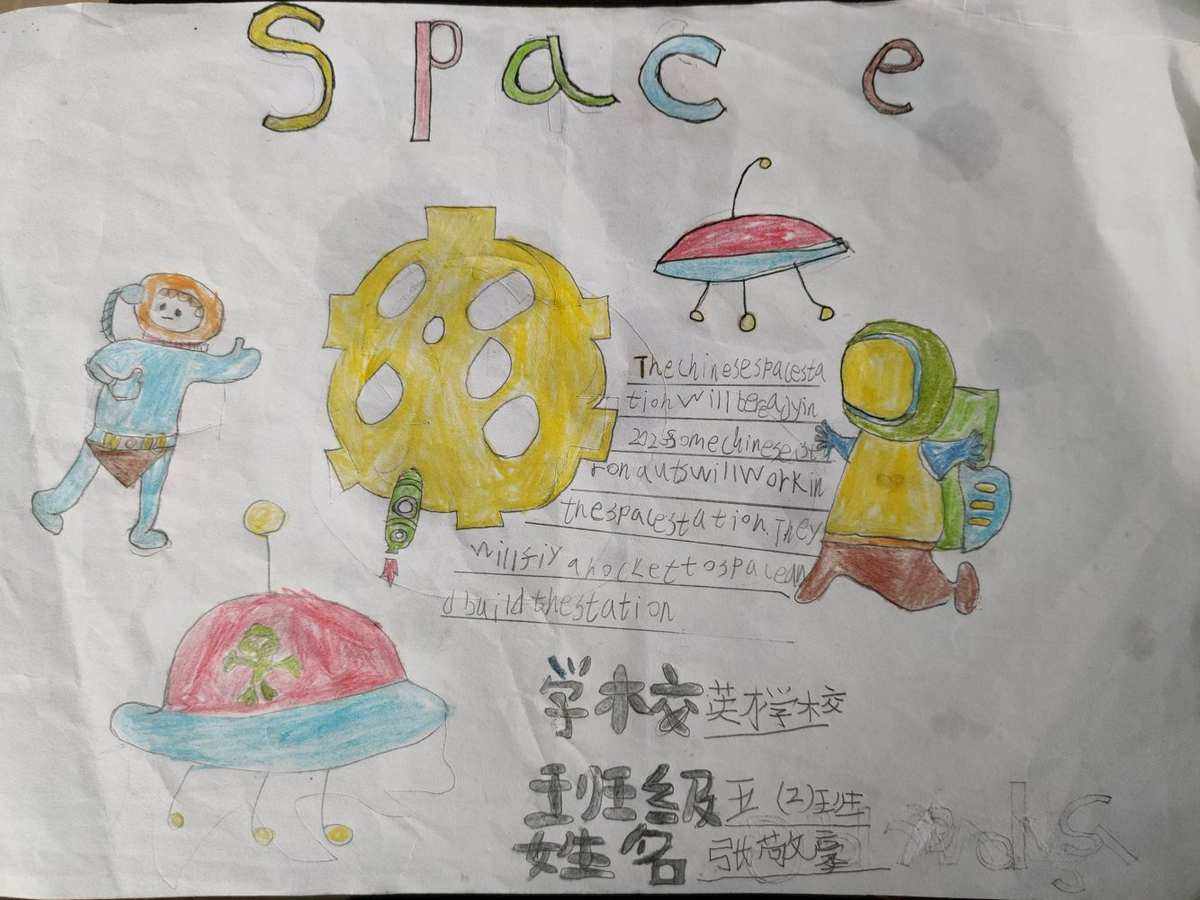 Space
The chinese spacesta
tion will be ready in
202 some chinese ast
ron auts will work in
the space station. They
will fiy a hockett o space an
d build the station
学校 英才学校
班级 五(2)班
姓名 张敬